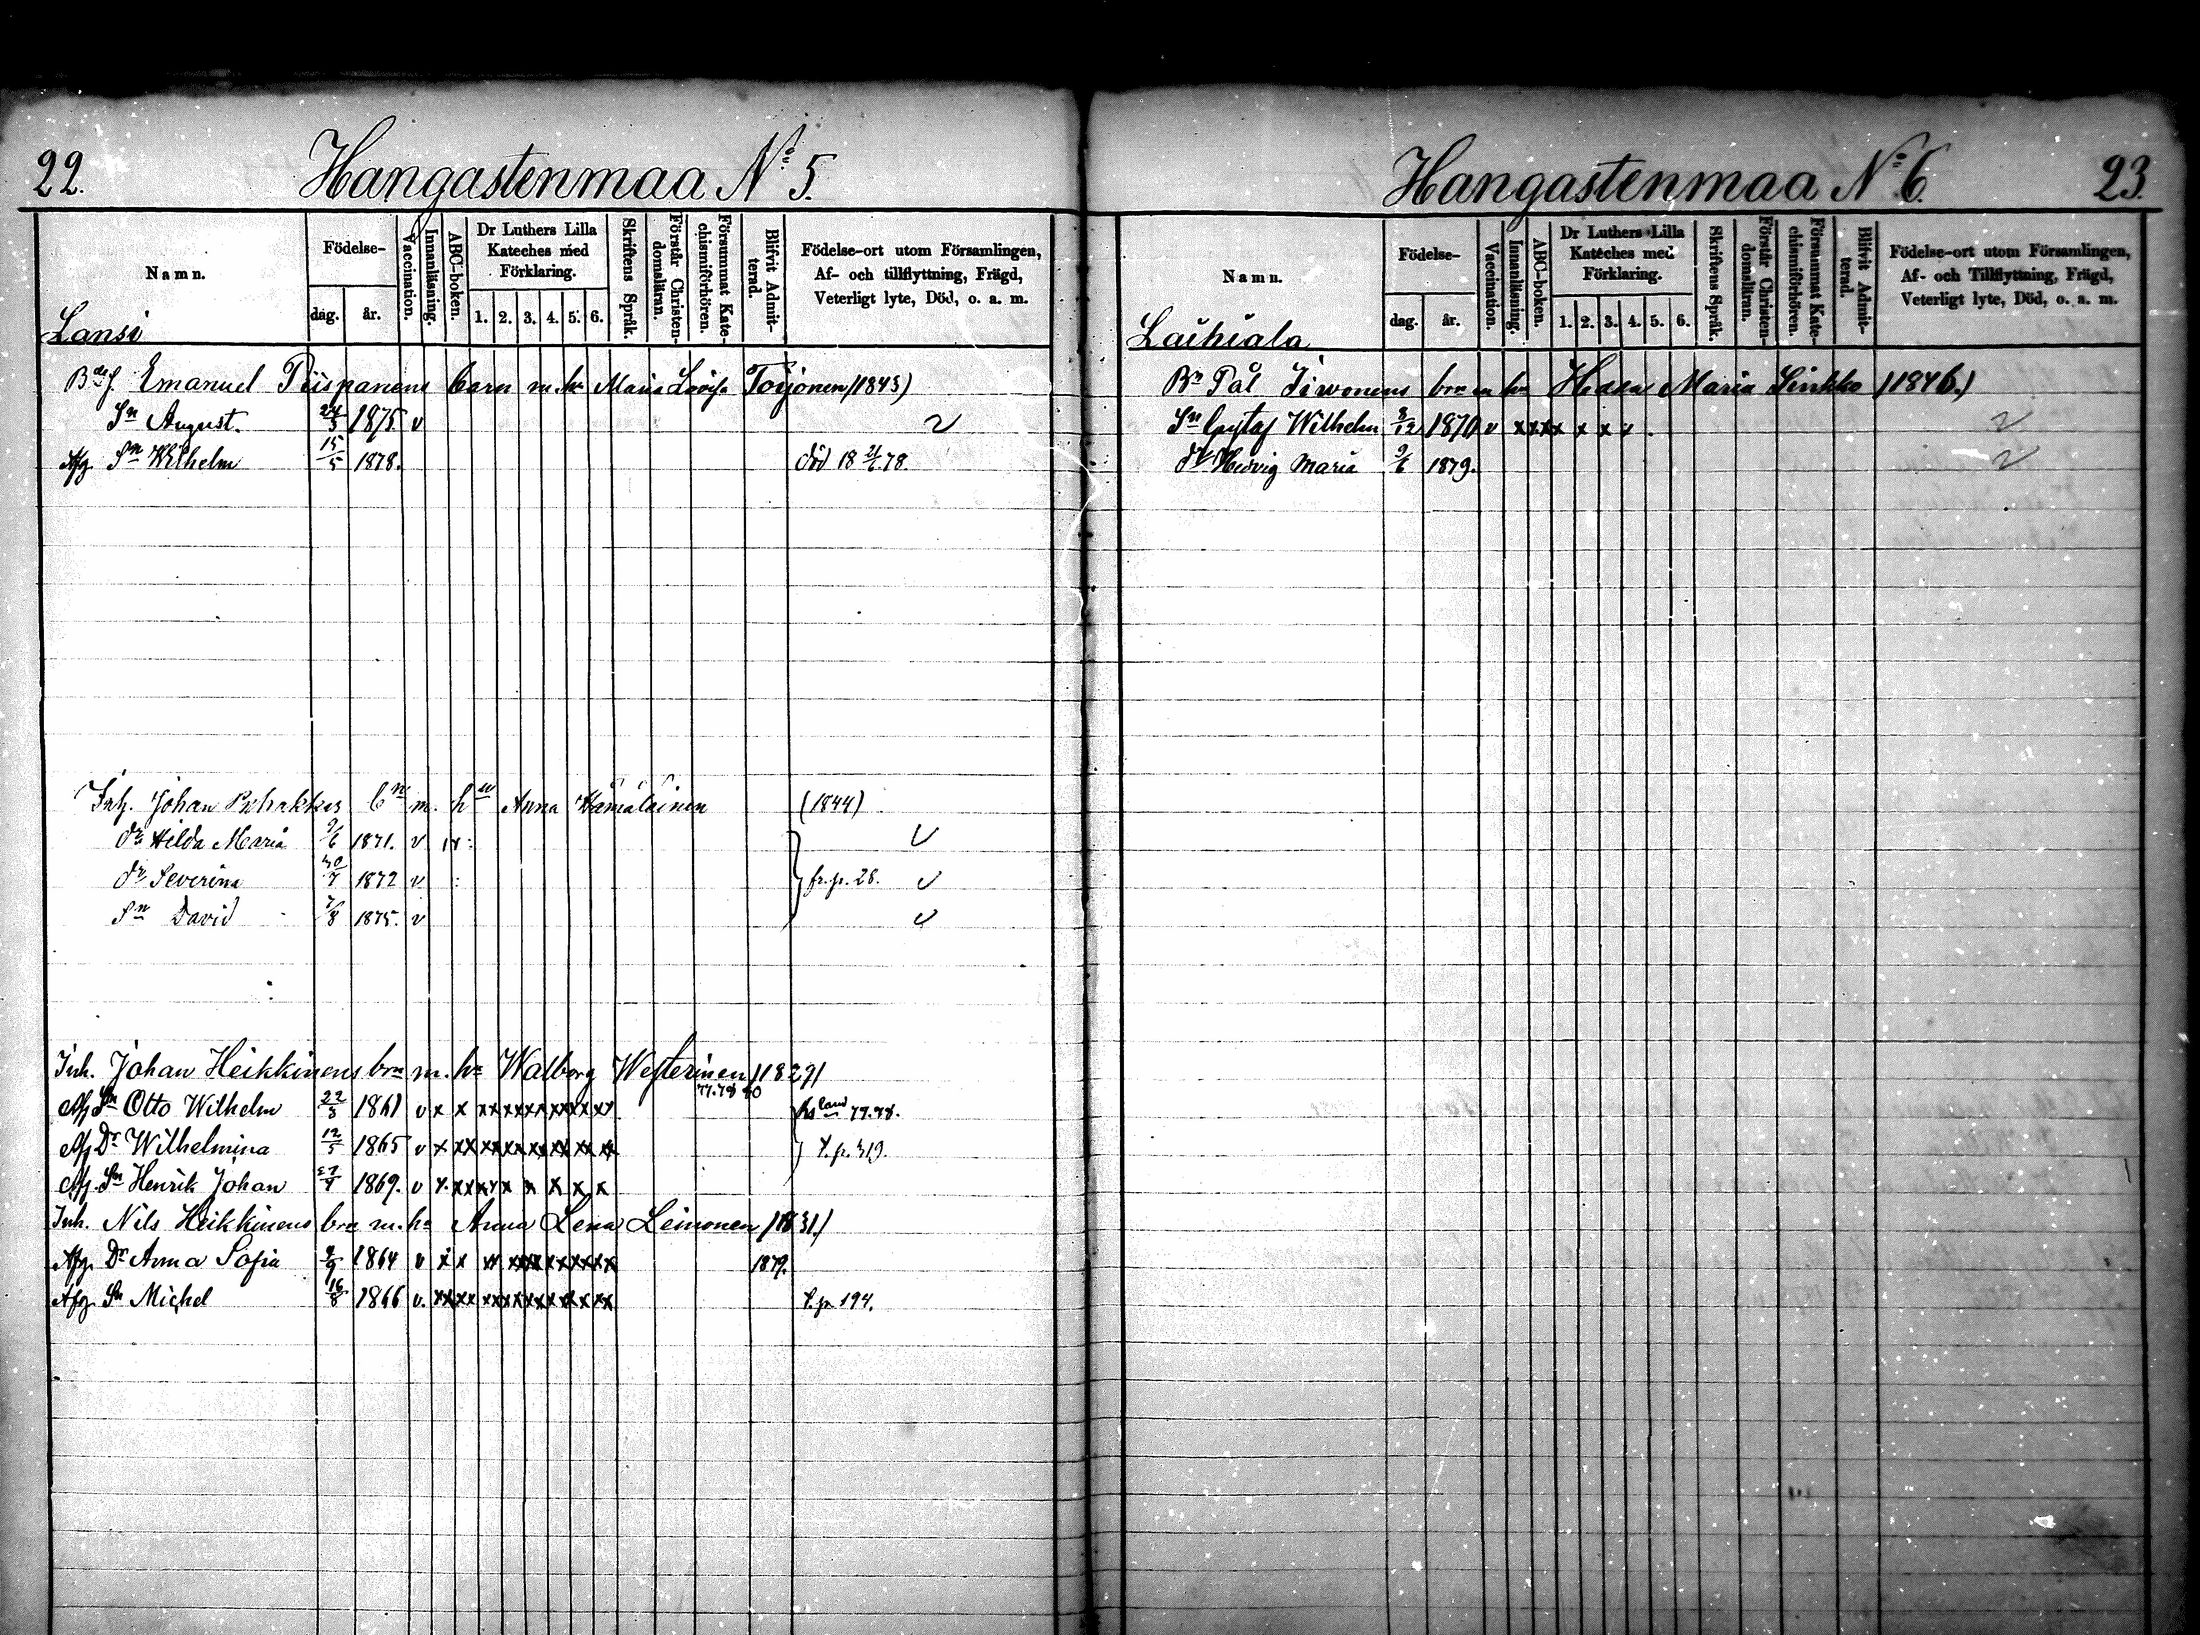 22.
Hangastenmaa No 5.
Namn.
Födelse-
dag.
år.
Vaccination.
Innanläsning.
ABC-boken.
Dr Luthers Lilla
Kateches med
Förklaring.
1. 2. 3. 4. 5. 6.
Skriftens Språk.
Förstår Christen-
domsläran.
Försummat Kate-
chismiförhören.
Blifvit Admit-
terad.
Födelse-ort utom Församlingen,
Af- och tillflyttning, Frägd,
Veterligt lyte, Död, o. a. m.
Lansi
Emanuel Piispanens barn m. hu Maria Lovisa Torjonen (1843)
Sn August. 24/3 1875. v
Afg Sn Wilhelm 15/5 1878. död 18 21/6 78
Inh. Johan bn m. hu Anna Hämäläinen (1844)
dr Hilda Maria 9/6 1871. v
dr Severina 30/7 1872 v fr. p. 28. v
Sn David 7/8 1875. v
Inh. Johan Heikkinens brn m. hu Walborg Westerinen (1829)
77.78 80
Afg Sn Otto Wilhelm 22/3 1861 v x x xx x x x x x x x 77.78.
Afg Dr Wilhelmina 12/5 1865 v x xx xx x x x x x x
Afg. Sn Henrik Johan 27/7 1869. v x. xx x x x x x x x
Inh. Nils Heikkinens brn m. hu Anna Lena Leinonen (1831.)
Afg. Dr Anna Sofia 9/9 1864 v x x xx x x x x x x 1879.
Afg. Sn Michel 16/8 1866 v. xx xx xx x x x x x x t. p. 194.
Hangastenmaa No 6.
23.
Namn.
Födelse-
dag.
år.
Vaccination.
Innanläsning.
ABC-boken.
Dr Luthers Lilla
Kateches med
Förklaring.
1. 2. 3. 4. 5. 6.
Skriftens Språk.
Förstår Christen-
domsläran.
Försummat Kate-
chismiförhören.
Blifvit Admit-
terad.
Födelse-ort utom Församlingen,
Af- och Tillflyttning, Frägd,
Veterligt lyte, Död, o. a. m.
Laihiala
Bn Pål Iiwonens brn m hu Maria Sinkko (1846.)
Sn Gustaf Wilhelm 8/12 1870 v x x x x x x x
dr Hedvig Maria 9/6 1879.